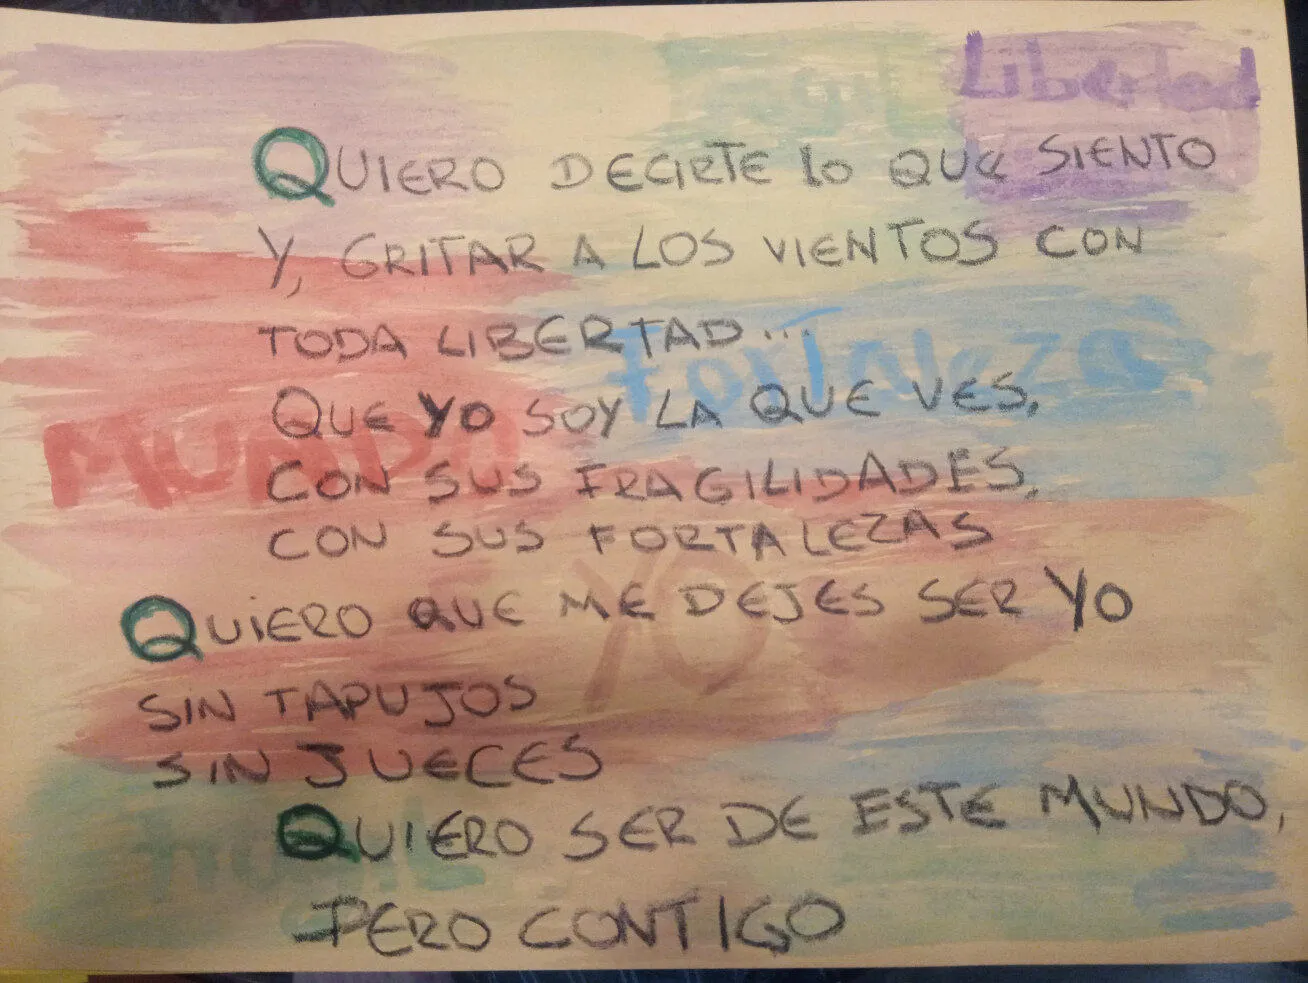 Libertad
QUIERO DECIRTE lo QUE SIENTO
Y, GRITAR A LOS VIENTOS CON
TODA LIBERTAD...
Fortaleza
QUE YO SOY LA QUE VES,
MUNDO
CON SUS FRAGILIDADES,
CON SUS FORTALEZAS
YO
QUIERO QUE ME DEJES SER YO
SIN TAPUJOS
SIN JUECES
QUIERO SER DE ESTE MUNDO,
PERO CONTIGO